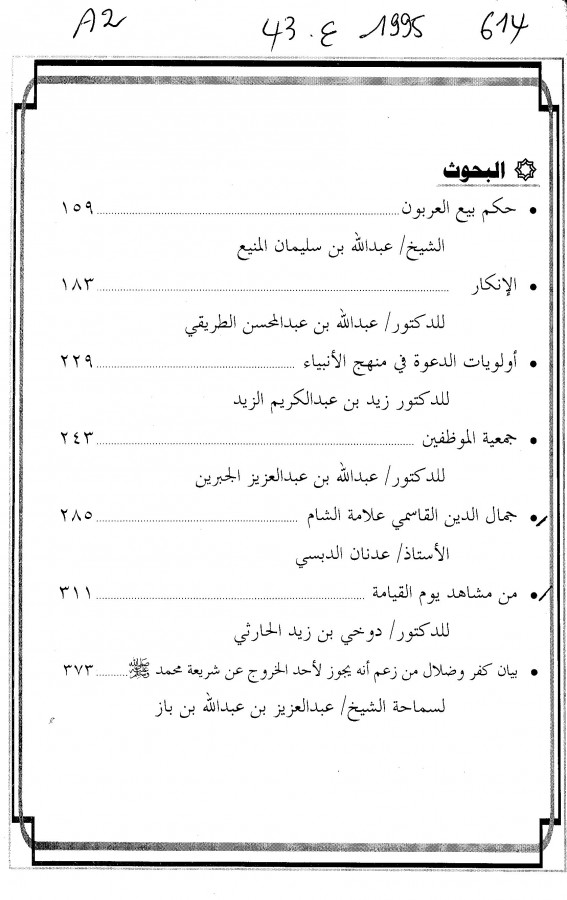 A2 43 ع. 1995 614
البحوث
• حكم بيع العربون ........ ١٥٩
الشيخ/ عبدالله بن سليمان المنيع
• الإنكار ........ ١٨٣
للدكتور/ عبدالله بن عبدالمحسن الطريقي
• أولويات الدعوة في منهج الأنبياء ........ ٢٢٩
للدكتور زيد بن عبدالكريم الزيد
• جمعية الموظفين ........ ٢٤٣
للدكتور/ عبدالله بن عبدالعزيز الجبرين
• جمال الدين القاسمي علامة الشام ........ ٢٨٥
الأستاذ/ عدنان الدبسي
• من مشاهد يوم القيامة ........ ٣١١
للدكتور/ دوخي بن زيد الحارثي
• بيان كفر وضلال من زعم أنه يجوز لأحد الخروج عن شريعة محمد ﷺ ........ ٣٧٣
لسماحة الشيخ/ عبدالعزيز بن عبدالله بن باز